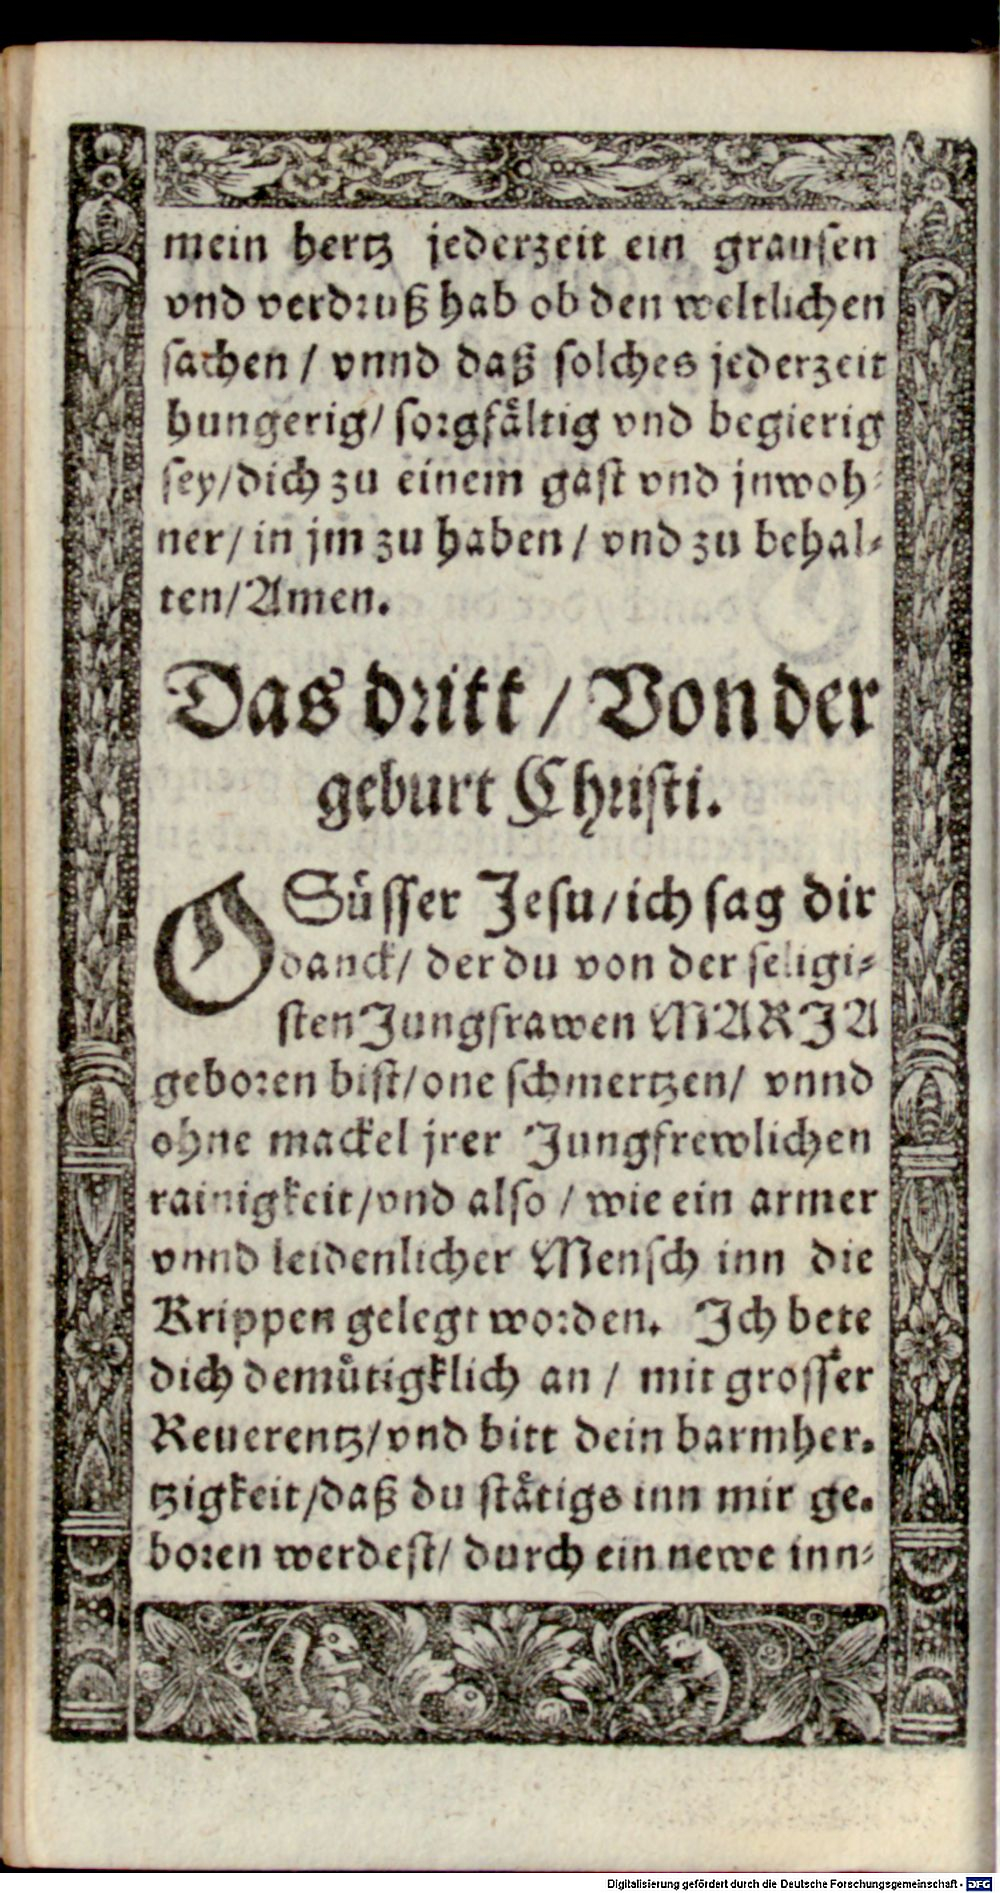 mein hertz jederzeit ein grausen
vnd verdruß hab ob den weltlichen
sachen / vnnd daß solches jederzeit
hungerig/ sorgfältig vnd begierig
sey/dich zu einem gast vnd jnwoh-
ner/ in jm zu haben / vnd zu behal-
ten/Amen.
Das dritt / Von der
geburt Christi.
O Süsser Jesu/ich sag dir
danck/ der du von der seligi-
sten Jungfrawen MARJA
geboren bist/one schmertzen/ vnnd
ohne mackel jrer Jungfrewlichen
rainigkeit/vnd also / wie ein armer
vnnd leidenlicher Mensch inn die
Krippen gelegt worden. Ich bete
dich demütigklich an / mit grosser
Reuerentz/vnd bitt dein barmher-
tzigkeit/daß du stätigs inn mir ge-
boren werdest/ durch ein newe inn-
Digitalisierung gefördert durch die Deutsche Forschungsgemeinschaft - DFG